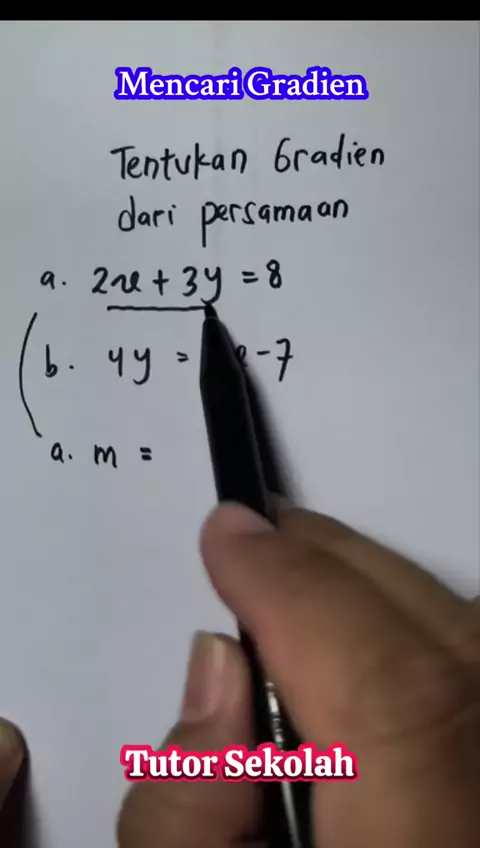 Mencari Gradien
Tentukan Gradien
dari persamaan
a. 2x + 3y = 8
b. 4y = - 7
a. m =
Tutor Sekolah